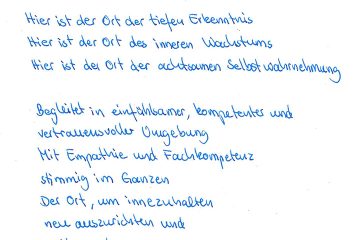 Hier ist der Ort der tiefen Erkenntnis
Hier ist der Ort des inneren Wachstums
Hier ist der Ort der achtsamen Selbstwahrnehmung
Begleitet in einfühlsamer, kompetenter und
vertrauensvoller Umgebung
Mit Empathie und Fachkompetenz
stimmig im Ganzen
Der Ort, um innezuhalten
neu auszurichten und